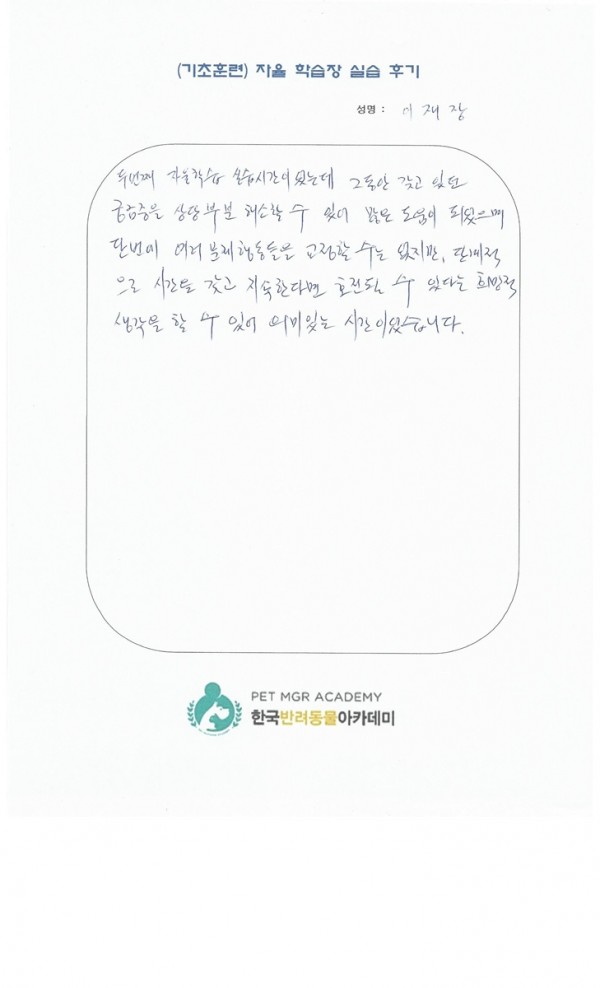 (기초훈련) 자율 학습장 실습 후기
성명 : 이재장
두번째 자율학습 실습시간이었는데 그동안 갖고 있던
궁금증을 상당부분 해소할 수 있어 많은 도움이 되었으며
단번에 여러 문제행동들을 교정할 수는 없지만, 단계적
으로 시간을 갖고 지속한다면 호전될 수 있다는 희망적
생각을 할 수 있어 의미있는 시간이었습니다.
PET MGR ACADEMY
한국반려동물아카데미